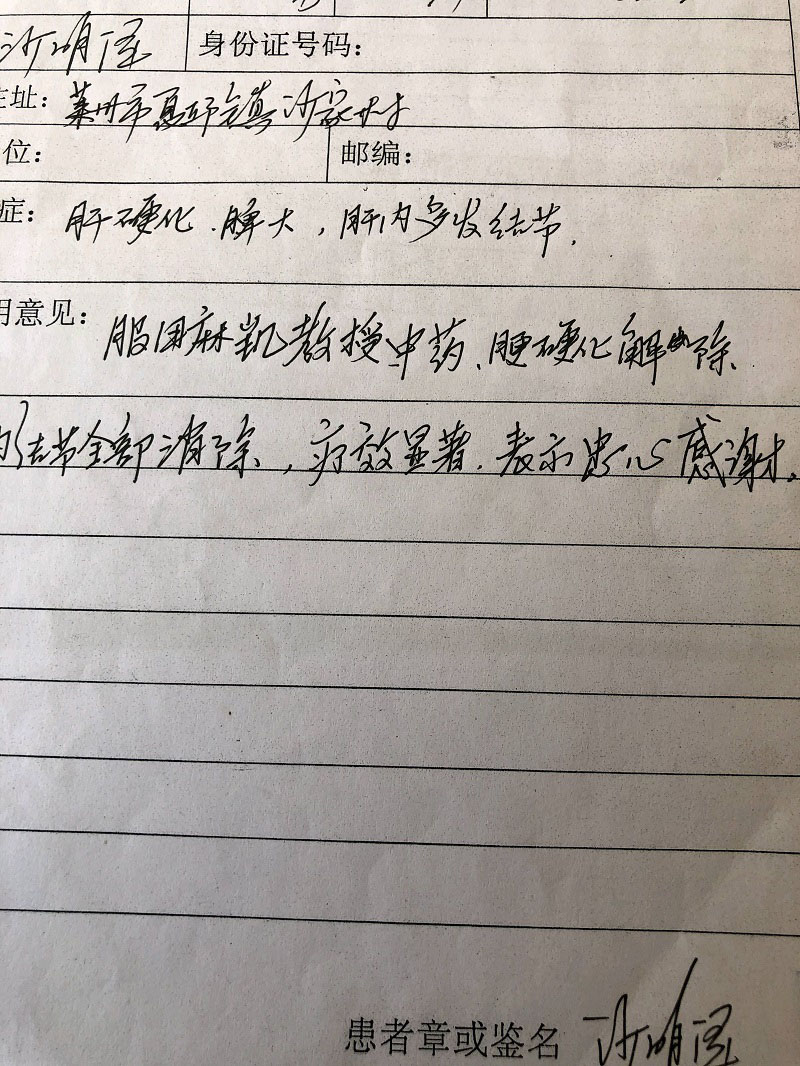 沙明 身份证号码：
住址：莱州市夏邱镇沙家村
位： 邮编：
症：肝硬化、脾大，肝内多发结节。
明意见：服用麻凯教授中药、肝硬化解除
内结节全部消除，疗效显著。表示忠心感谢。
患者章或鉴名 沙明